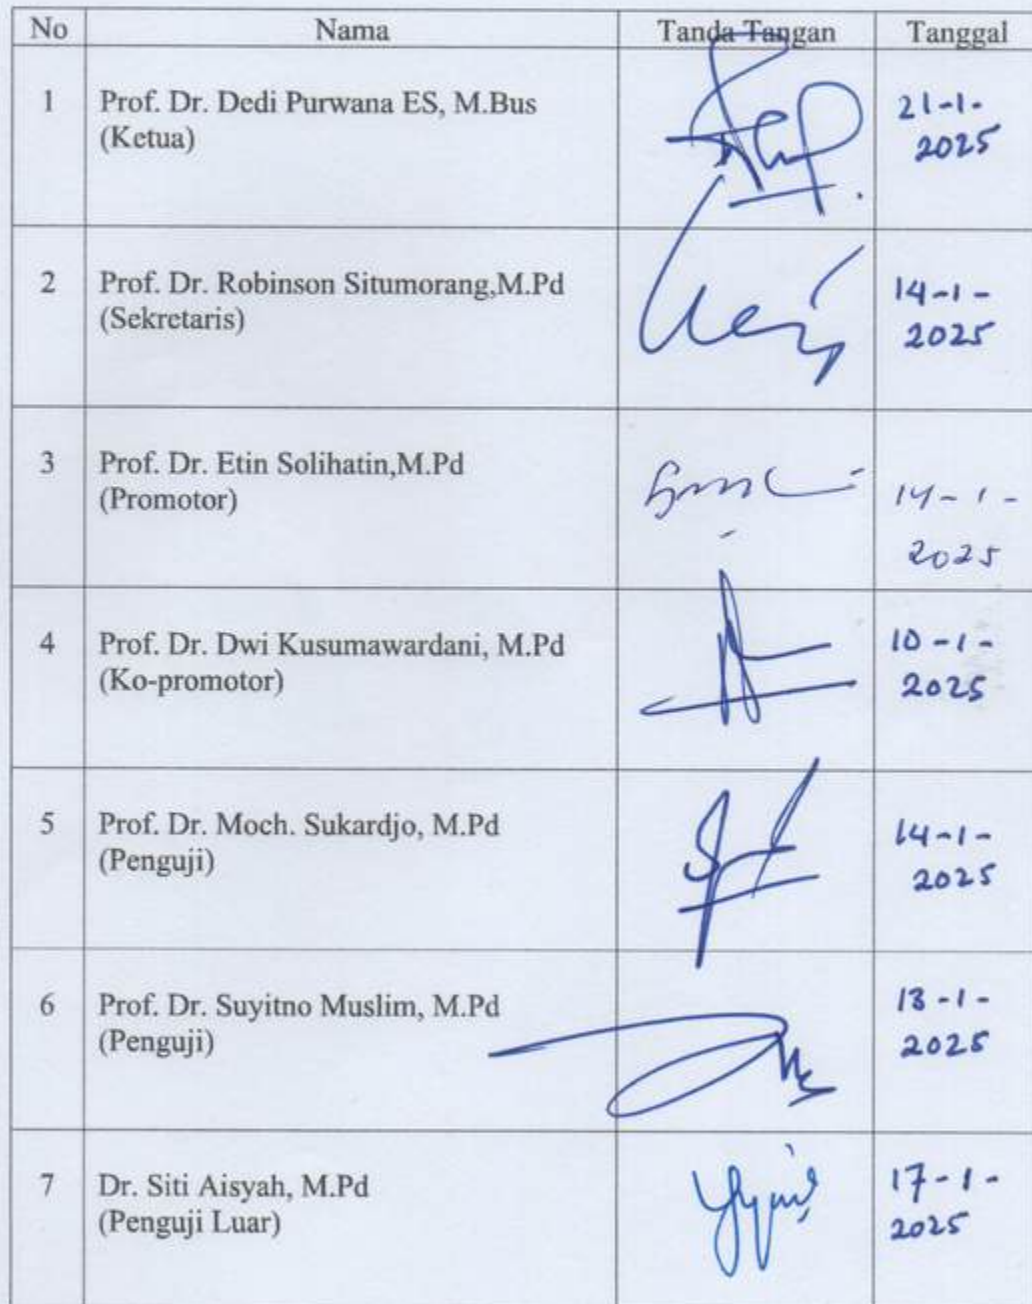 No Nama Tanda Tangan Tanggal
1 Prof. Dr. Dedi Purwana ES, M.Bus 21-1-
(Ketua) 2025
2 Prof. Dr. Robinson Situmorang,M.Pd 14-1-
(Sekretaris) 2025
3 Prof. Dr. Etin Solihatin,M.Pd 14-1-
(Promotor) 2025
4 Prof. Dr. Dwi Kusumawardani, M.Pd 10-1-
(Ko-promotor) 2025
5 Prof. Dr. Moch. Sukardjo, M.Pd 14-1-
(Penguji) 2025
6 Prof. Dr. Suyitno Muslim, M.Pd 13-1-
(Penguji) 2025
7 Dr. Siti Aisyah, M.Pd 17-1-
(Penguji Luar) 2025